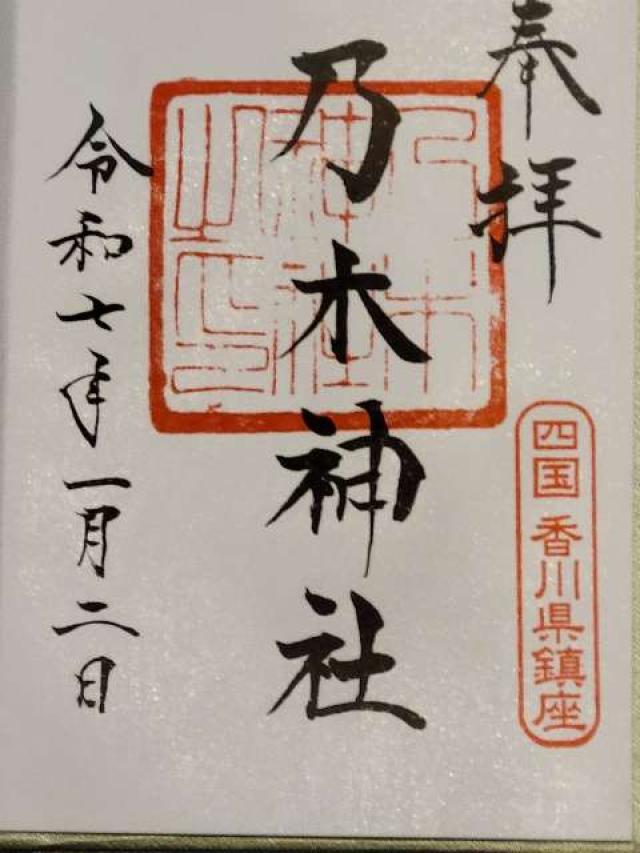 奉拝
四国 香川県鎮座
乃木神社
乃木神社之印
令和七年一月二日